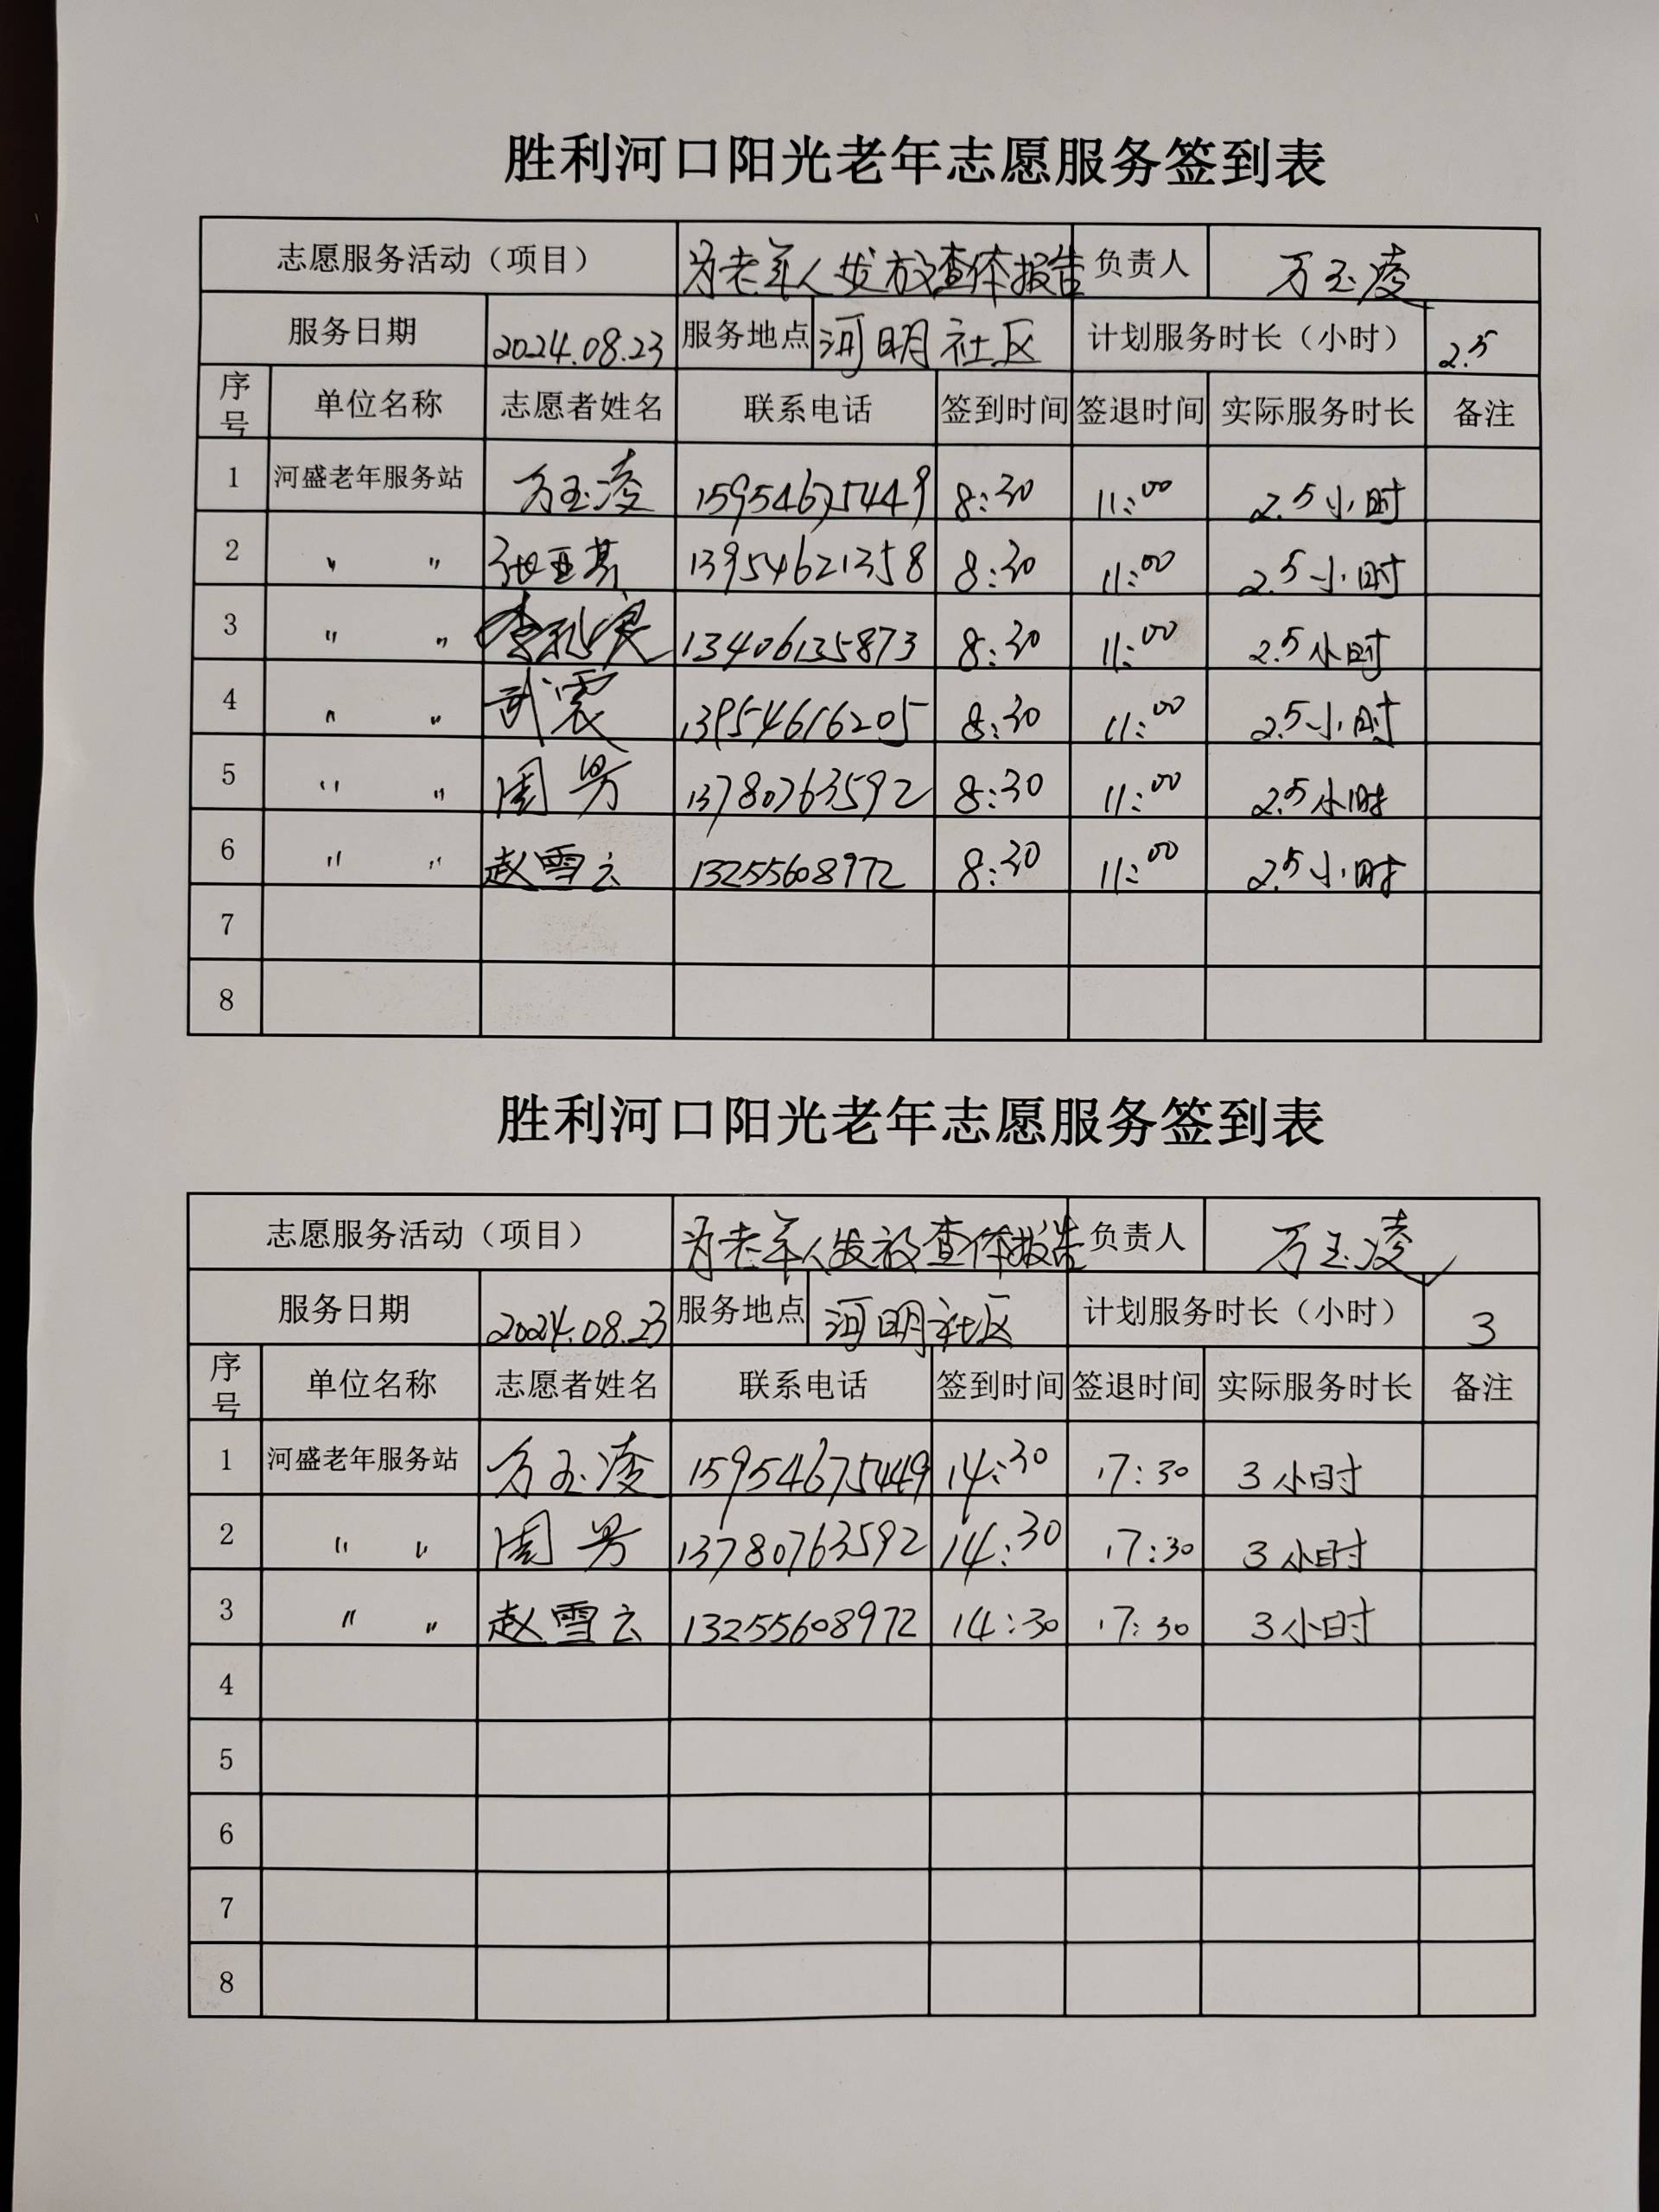 胜利河口阳光老年志愿服务签到表
志愿服务活动（项目） 为老年人发放查体报告 负责人 万玉凌
服务日期 2024.08.23 服务地点 河明社区 计划服务时长（小时） 2.5
序号 单位名称 志愿者姓名 联系电话 签到时间 签退时间 实际服务时长 备注
1 河盛老年服务站 万玉凌 15954675449 8:30 11:00 2.5小时
2 〃 〃 张亚基 13954621358 8:30 11:00 2.5小时
3 〃 〃 13406135873 8:30 11:00 2.5小时
4 〃 〃 武震 13954616205 8:30 11:00 2.5小时
5 〃 〃 周男 13780763592 8:30 11:00 2.5小时
6 〃 〃 赵雪云 13255608972 8:30 11:00 2.5小时
7
8
胜利河口阳光老年志愿服务签到表
志愿服务活动（项目） 为老年人发放查体报告 负责人 万玉凌
服务日期 2024.08.23 服务地点 河明社区 计划服务时长（小时） 3
序号 单位名称 志愿者姓名 联系电话 签到时间 签退时间 实际服务时长 备注
1 河盛老年服务站 万玉凌 15954675449 14:30 17:30 3小时
2 〃 〃 周男 13780763592 14:30 17:30 3小时
3 〃 〃 赵雪云 13255608972 14:30 17:30 3小时
4
5
6
7
8